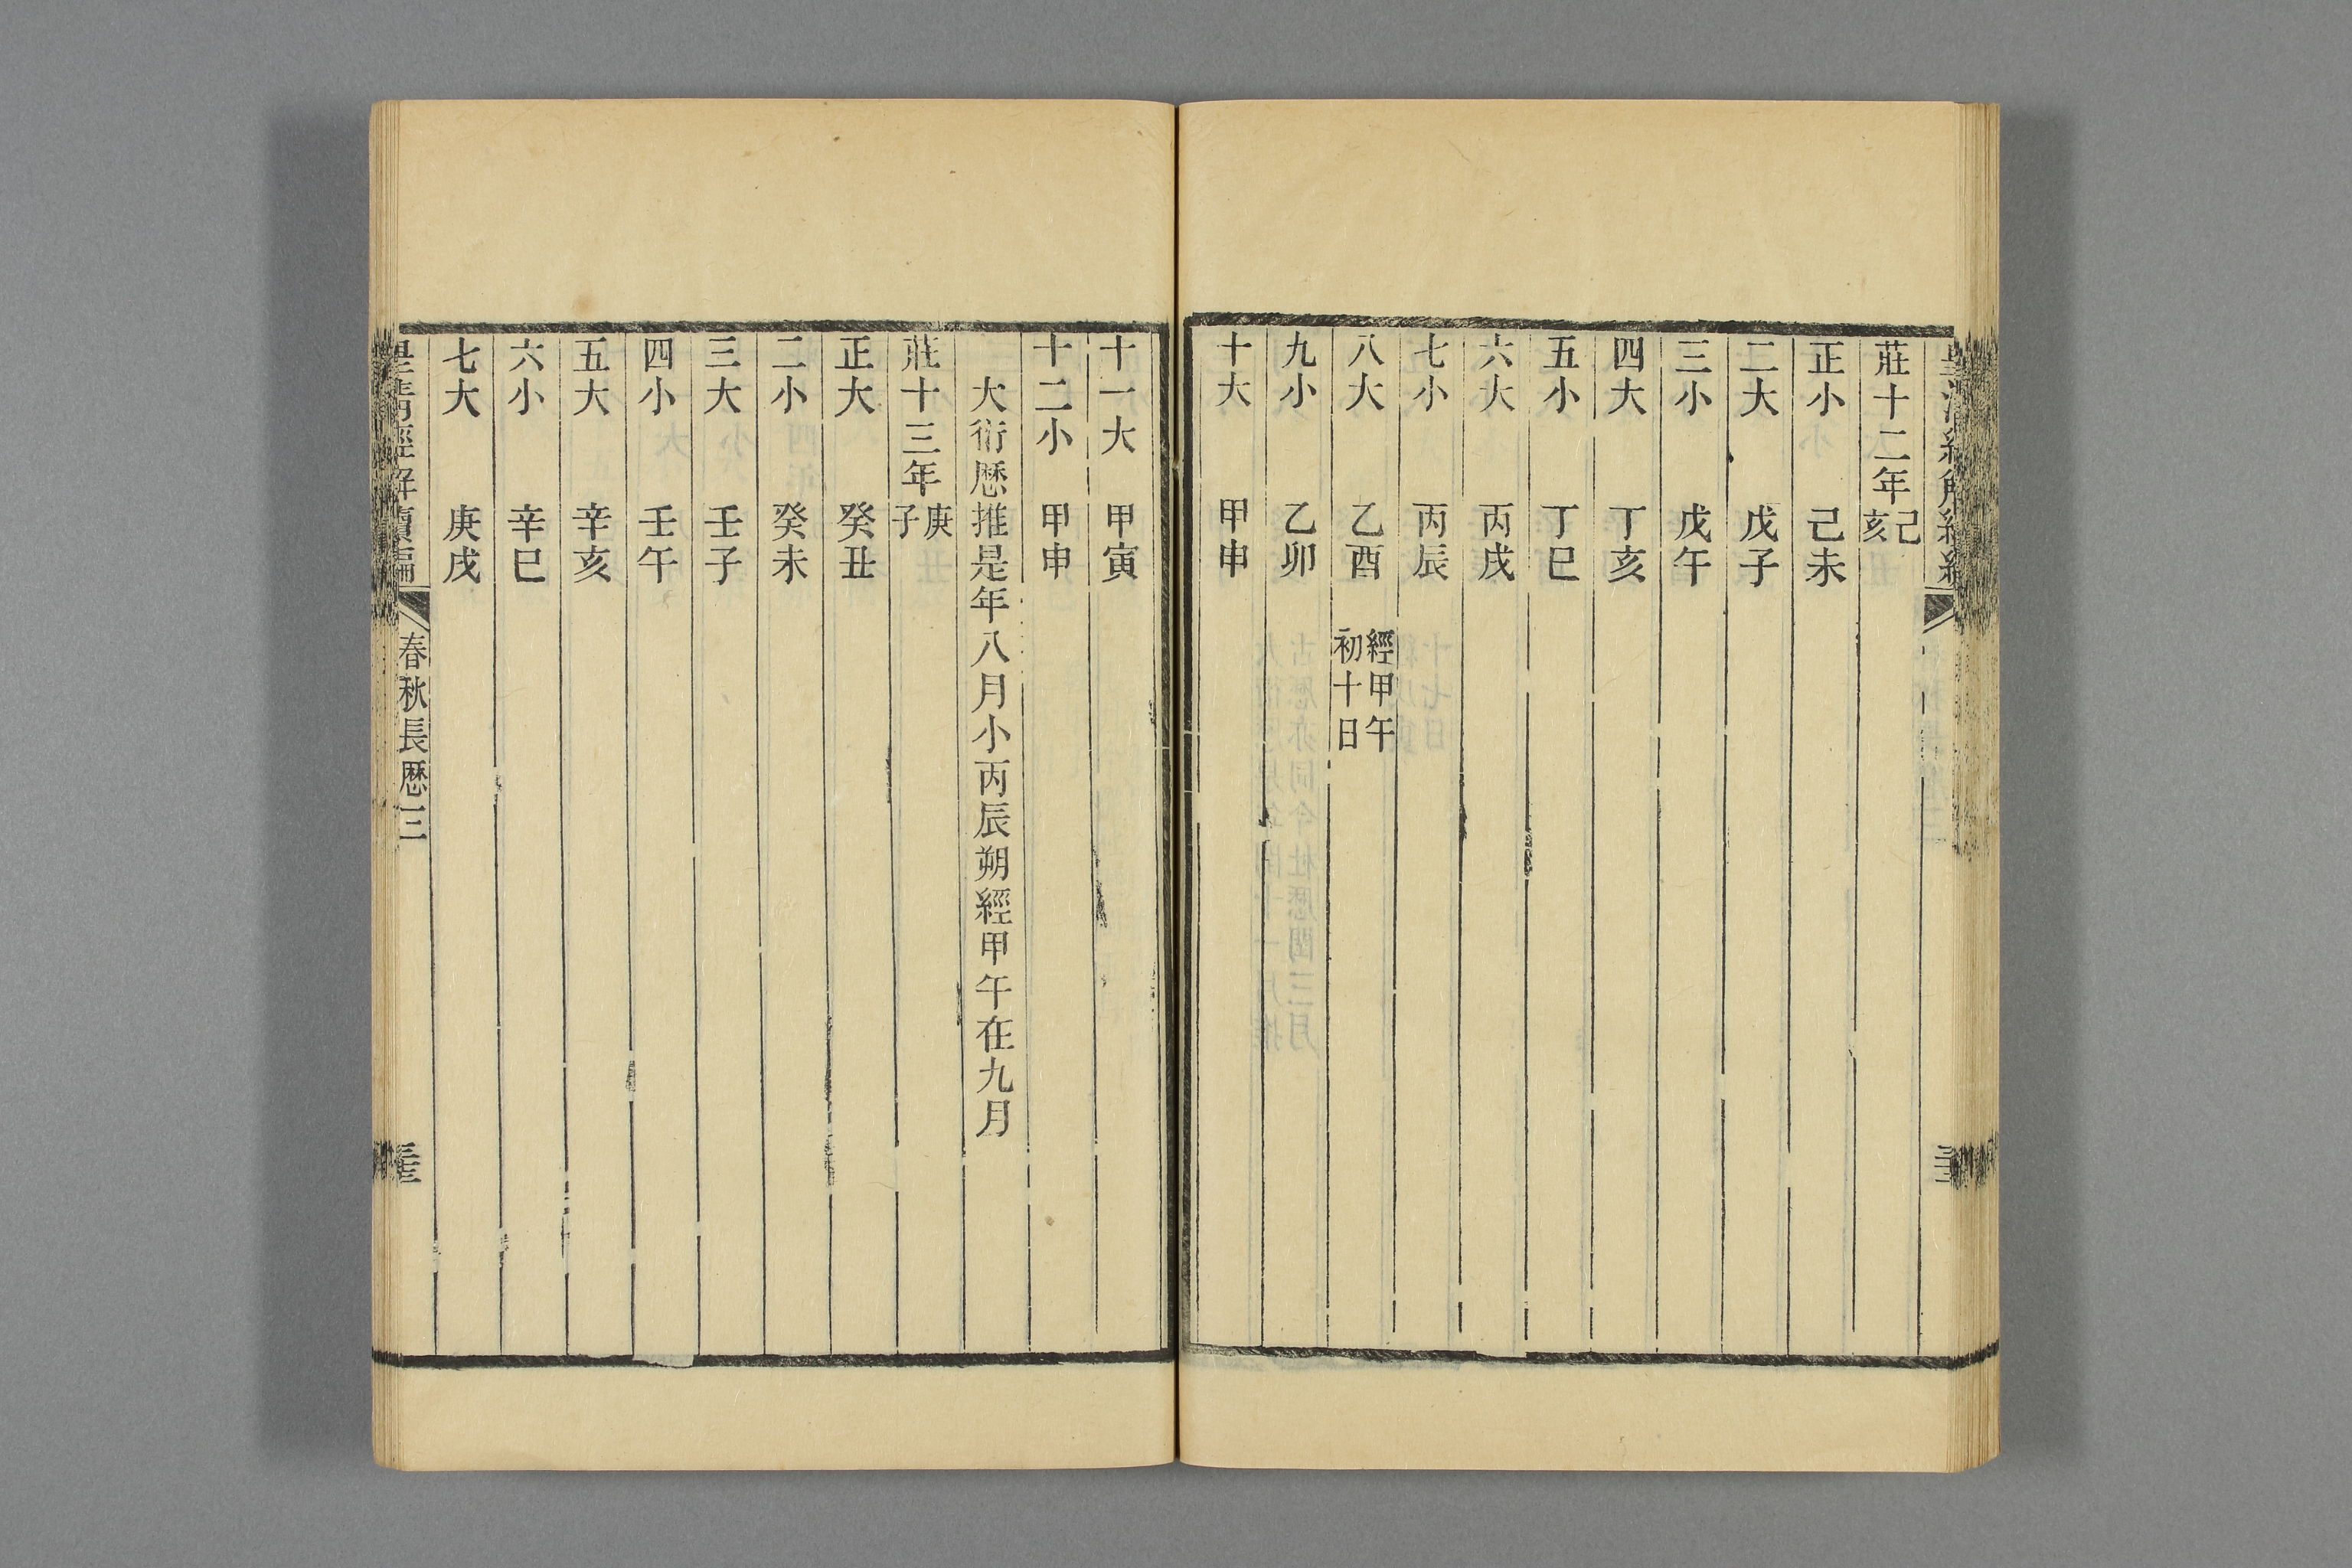 莊十二年己亥
正小 己未
二大 戊子
三小 戊午
四大 丁亥
五小 丁巳
六大 丙戌
七小 丙辰
八大 乙酉 經甲午初十日
九小 乙卯
十大 甲申
十一大 甲寅
十二小 甲申
大衍厯推是年八月小丙辰朔經甲午在九月
莊十三年庚子
正大 癸丑
二小 癸未
三大 壬子
四小 壬午
五大 辛亥
六小 辛巳
七大 庚戌
皇清經解續編 春秋長厯三